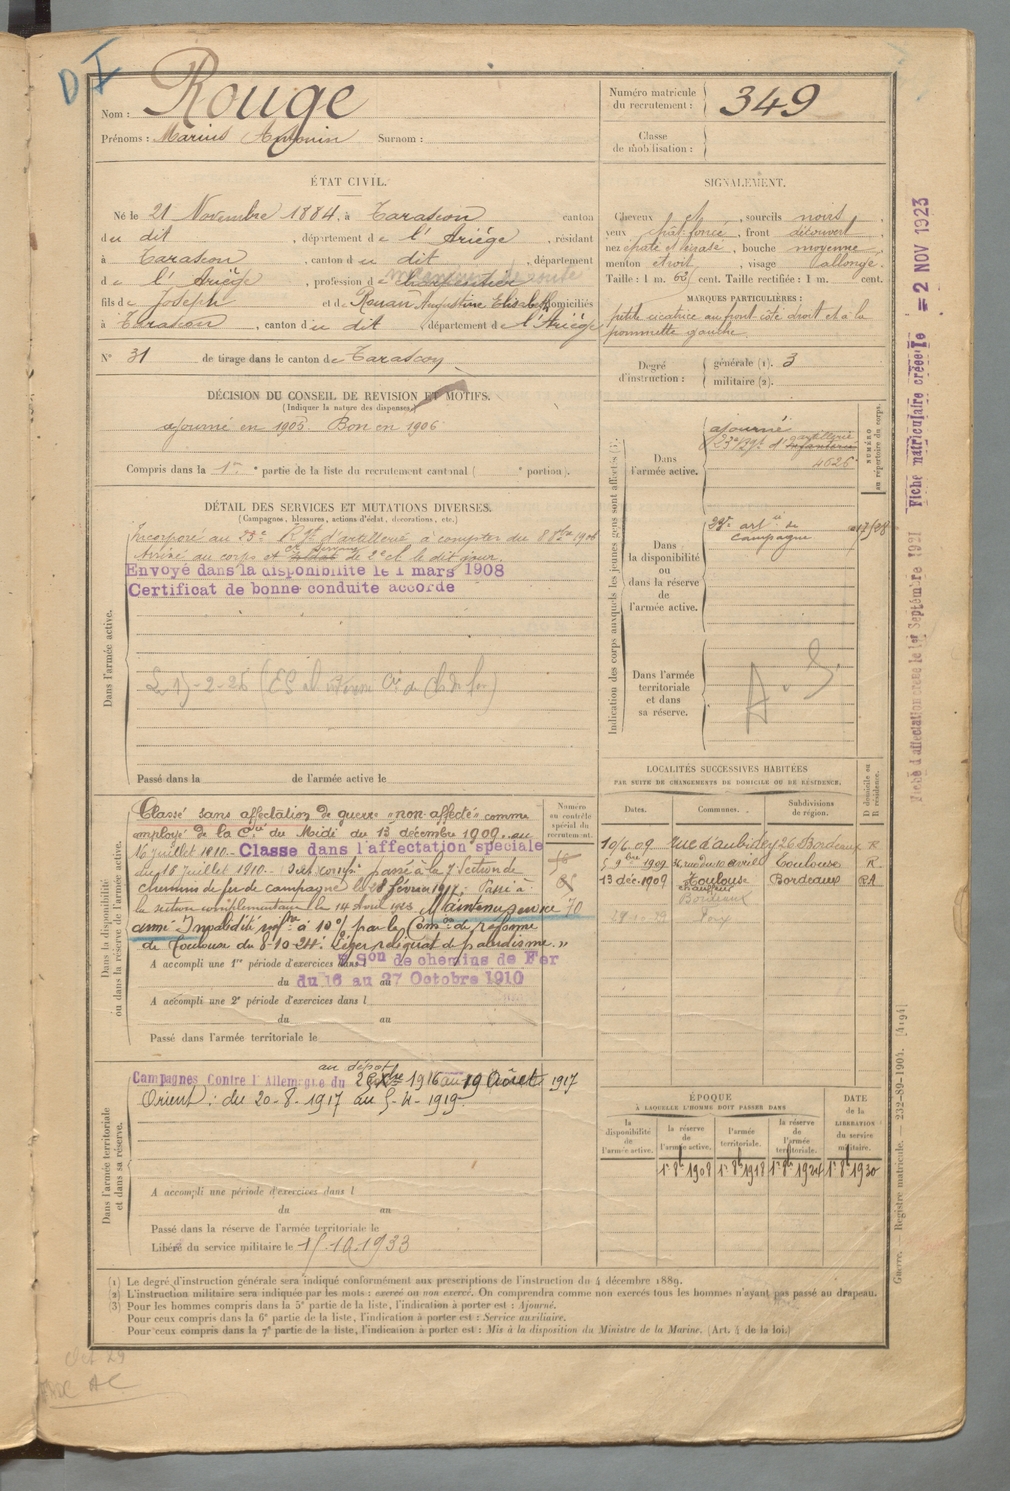 D I
Nom : Rouge
Prénoms : Marius Antonin Surnom :
Numéro matricule du recrutement : 349
Classe de mobilisation :
ÉTAT CIVIL.
Né le 21 Novembre 1884, à Tarascon canton
du dit, département de l'Ariège, résidant
à Tarascon, canton du dit, département
de l'Ariège, profession de charpentier
fils de Joseph et de Rouan Augustine Elisabeth domiciliés
à Tarascon, canton du dit, département de l'Ariège
N° 31 de tirage dans le canton de Tarascon
SIGNALEMENT.
Cheveux et, sourcils noirs,
yeux chât. foncé, front découvert,
nez épaté et, bouche moyenne,
menton étroit, visage allongé.
Taille : 1 m. 63 cent. Taille rectifiée : 1 m. cent.
MARQUES PARTICULIÈRES :
petite cicatrice au front côté droit et à la
pommette gauche.
Degré d'instruction : générale (1). 3
militaire (2).
DÉCISION DU CONSEIL DE REVISION ET MOTIFS.
(Indiquer la nature des dispenses.)
ajourné en 1905 Bon en 1906
Compris dans la 1re partie de la liste du recrutement cantonal ( e portion).
DÉTAIL DES SERVICES ET MUTATIONS DIVERSES.
(Campagnes, blessures, actions d'éclat, décorations, etc.)
Dans l'armée active.
Incorporé au 23e Rgt d'artillerie à compter du 8 8bre 1906
Arrivé au corps et cr servant de 2e cl. le dit jour.
Envoyé dans la disponibilité le 1 mars 1908
Certificat de bonne conduite accordé
Passé dans la de l'armée active le
Indication des corps auxquels les jeunes gens sont affectés (3).
NUMÉRO au répertoire du corps.
Dans l'armée active.
ajourné
23e Rgt d'artillerie
4626
Dans la disponibilité ou dans la réserve de l'armée active.
23e artie de campagne
Dans l'armée territoriale et dans sa réserve.
LOCALITÉS SUCCESSIVES HABITÉES
PAR SUITE DE CHANGEMENTS DE DOMICILE OU DE RÉSIDENCE.
D domicile ou R résidence.
Dates. Communes. Subdivisions de région.
10/6.09 rue d'Aubidey 26 Bordeaux R
5 9bre 1909 Toulouse R.
13 déc. 1909 Toulouse Bordeaux
Bordeaux
Foix
Dans la disponibilité ou dans la réserve de l'armée active.
Numéro au contrôle spécial du recrutement.
Classé sans affectation de guerre "non affecté" comme
employé de la Cie du Midi du 13 décembre 1909 au
16 juillet 1910. - Classé dans l'affectation spéciale
du 16 juillet 1910. - passé à la 7 Section de
chemins de fer de campagne le 28 février 1917. Passé à
la section complémentaire le 14 avril 1923 Maintenu service 70
armé Invalidité inf. à 10% par la Com.on de réforme
de Toulouse du 8-10-24 : Léger reliquat de paludisme. »
A accompli une 1re période d'exercices dans l 7 Son de chemins de Fer
du 16 au 27 Octobre 1910
A accompli une 2e période d'exercices dans l
du au
Passé dans l'armée territoriale le
Dans l'armée territoriale et dans sa réserve.
au dépôt
Campagnes Contre l'Allemagne du 1916 au 19 Août 1917
Orient : du 20-8-1917 au 5-4-1919.
A accompli une période d'exercices dans l
du au
Passé dans la réserve de l'armée territoriale le
Libéré du service militaire le 15.10.1933
ÉPOQUE
À LAQUELLE L'HOMME DOIT PASSER DANS
DATE de la LIBÉRATION du service militaire.
la disponibilité de l'armée active. la réserve de l'armée active. l'armée territoriale. la réserve de l'armée territoriale.
1er 8b 1908 1er 8b 1918 1er 8b 1924 1er 8b 1930
(1) Le degré d'instruction générale sera indiqué conformément aux prescriptions de l'instruction du 4 décembre 1889.
(2) L'instruction militaire sera indiquée par les mots : exercé ou non exercé. On comprendra comme non exercés tous les hommes n'ayant pas passé au drapeau.
(3) Pour les hommes compris dans la 5e partie de la liste, l'indication à porter est : Ajourné.
Pour ceux compris dans la 6e partie de la liste, l'indication à porter est : Service auxiliaire.
Pour ceux compris dans la 7e partie de la liste, l'indication à porter est : Mis à la disposition du Ministre de la Marine. (Art. 4 de la loi.)
Guerre. — Registre matricule. — 232-89-1904. [4194]
Fiche d'affectation créée le 1er Septembre 1921 Fiche matriculaire créée le = 2 NOV 1923